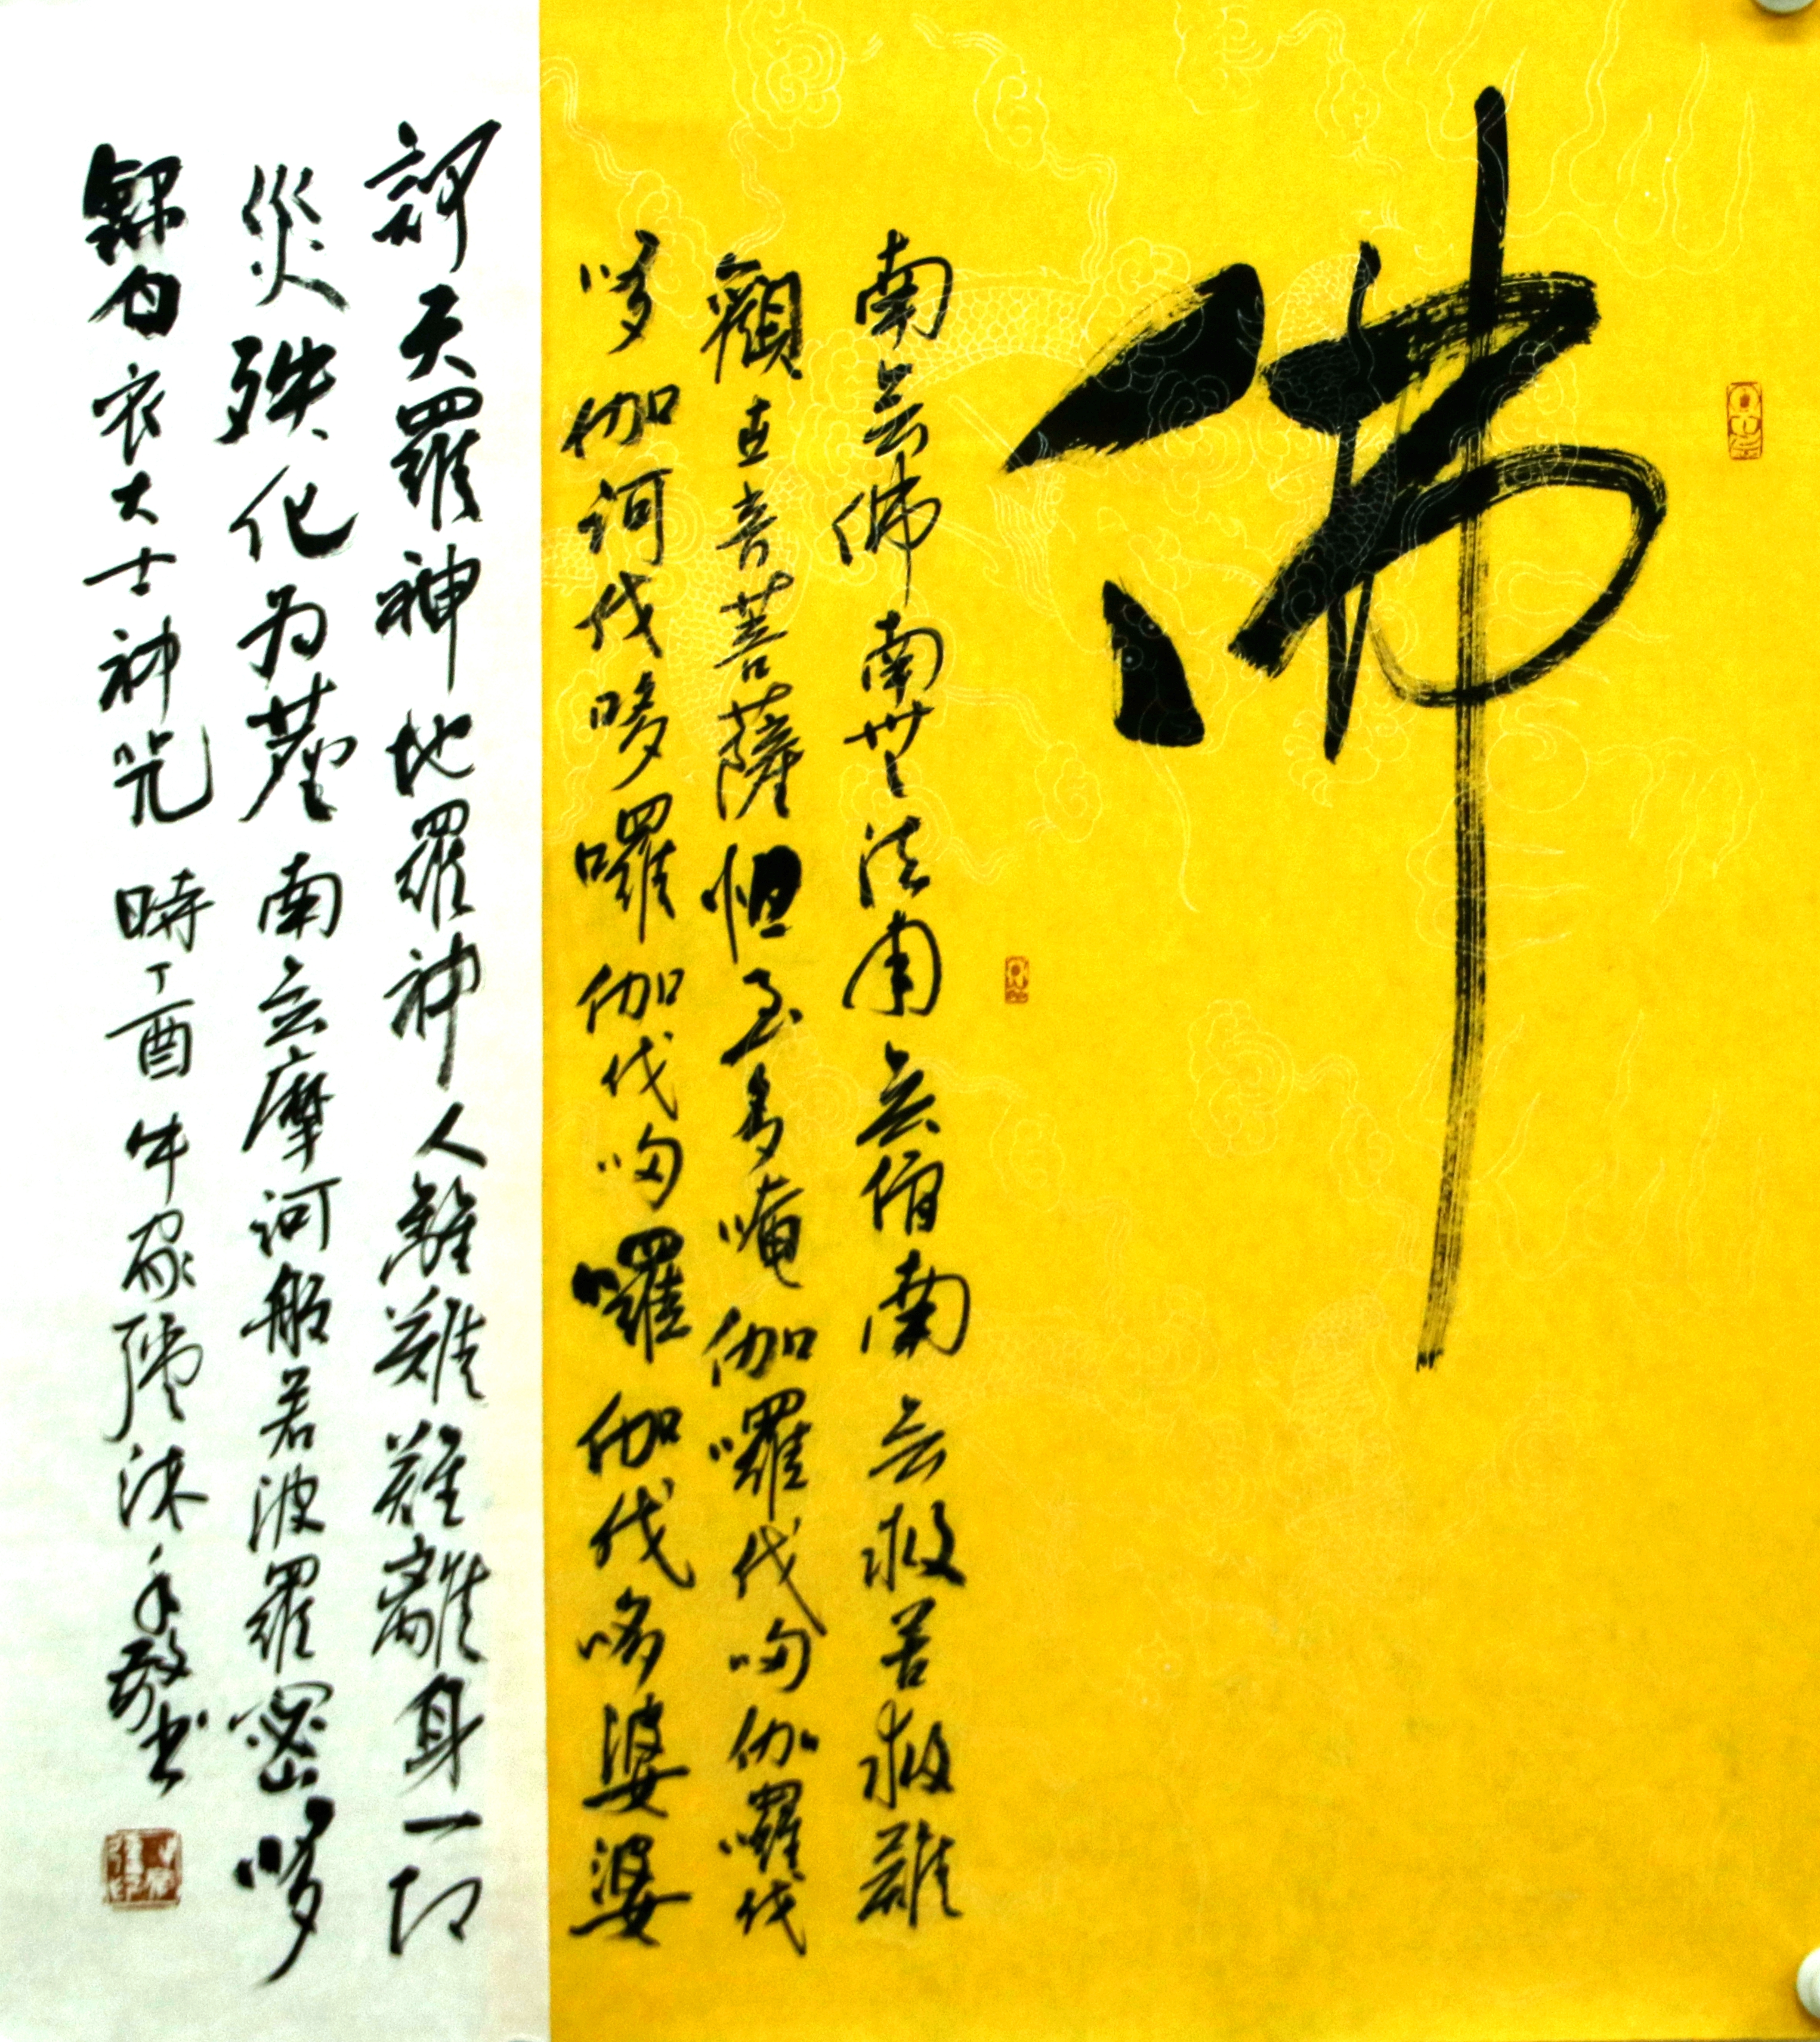 佛
南无佛南無法南无僧南无救苦救難
觀世音菩薩怛至多唵伽囉伐哆伽囉伐
哆伽訶伐哆囉伽伐哆囉伽伐哆婆婆
訶天羅神地羅神人離難難離身一切
災殃化为塵南无摩訶般若波羅密哆
録白衣大士神咒 時丁酉年家沐手敬书